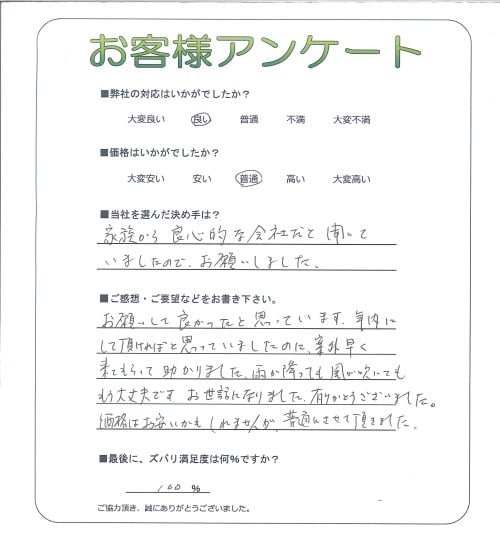 お客様アンケート
■弊社の対応はいかがでしたか？
大変良い 良い 普通 不満 大変不満
■価格はいかがでしたか？
大変安い 安い 普通 高い 大変高い
■当社を選んだ決め手は？
家族から良心的な会社だと聞いて
いましたので、お願いしました。
■ご感想・ご要望などをお書き下さい。
お願いして良かったと思っています。年内に
して頂ければと思っていましたのに、案外早く
来てもらって助かりました。雨が降っても風が吹いても
もう大丈夫です。お世話になりました。有りがとうございました。
価格はお安いかもしれませんが、普通にさせて頂きました。
■最後に、ズバリ満足度は何%ですか？
100 %
ご協力頂き、誠にありがとうございました。